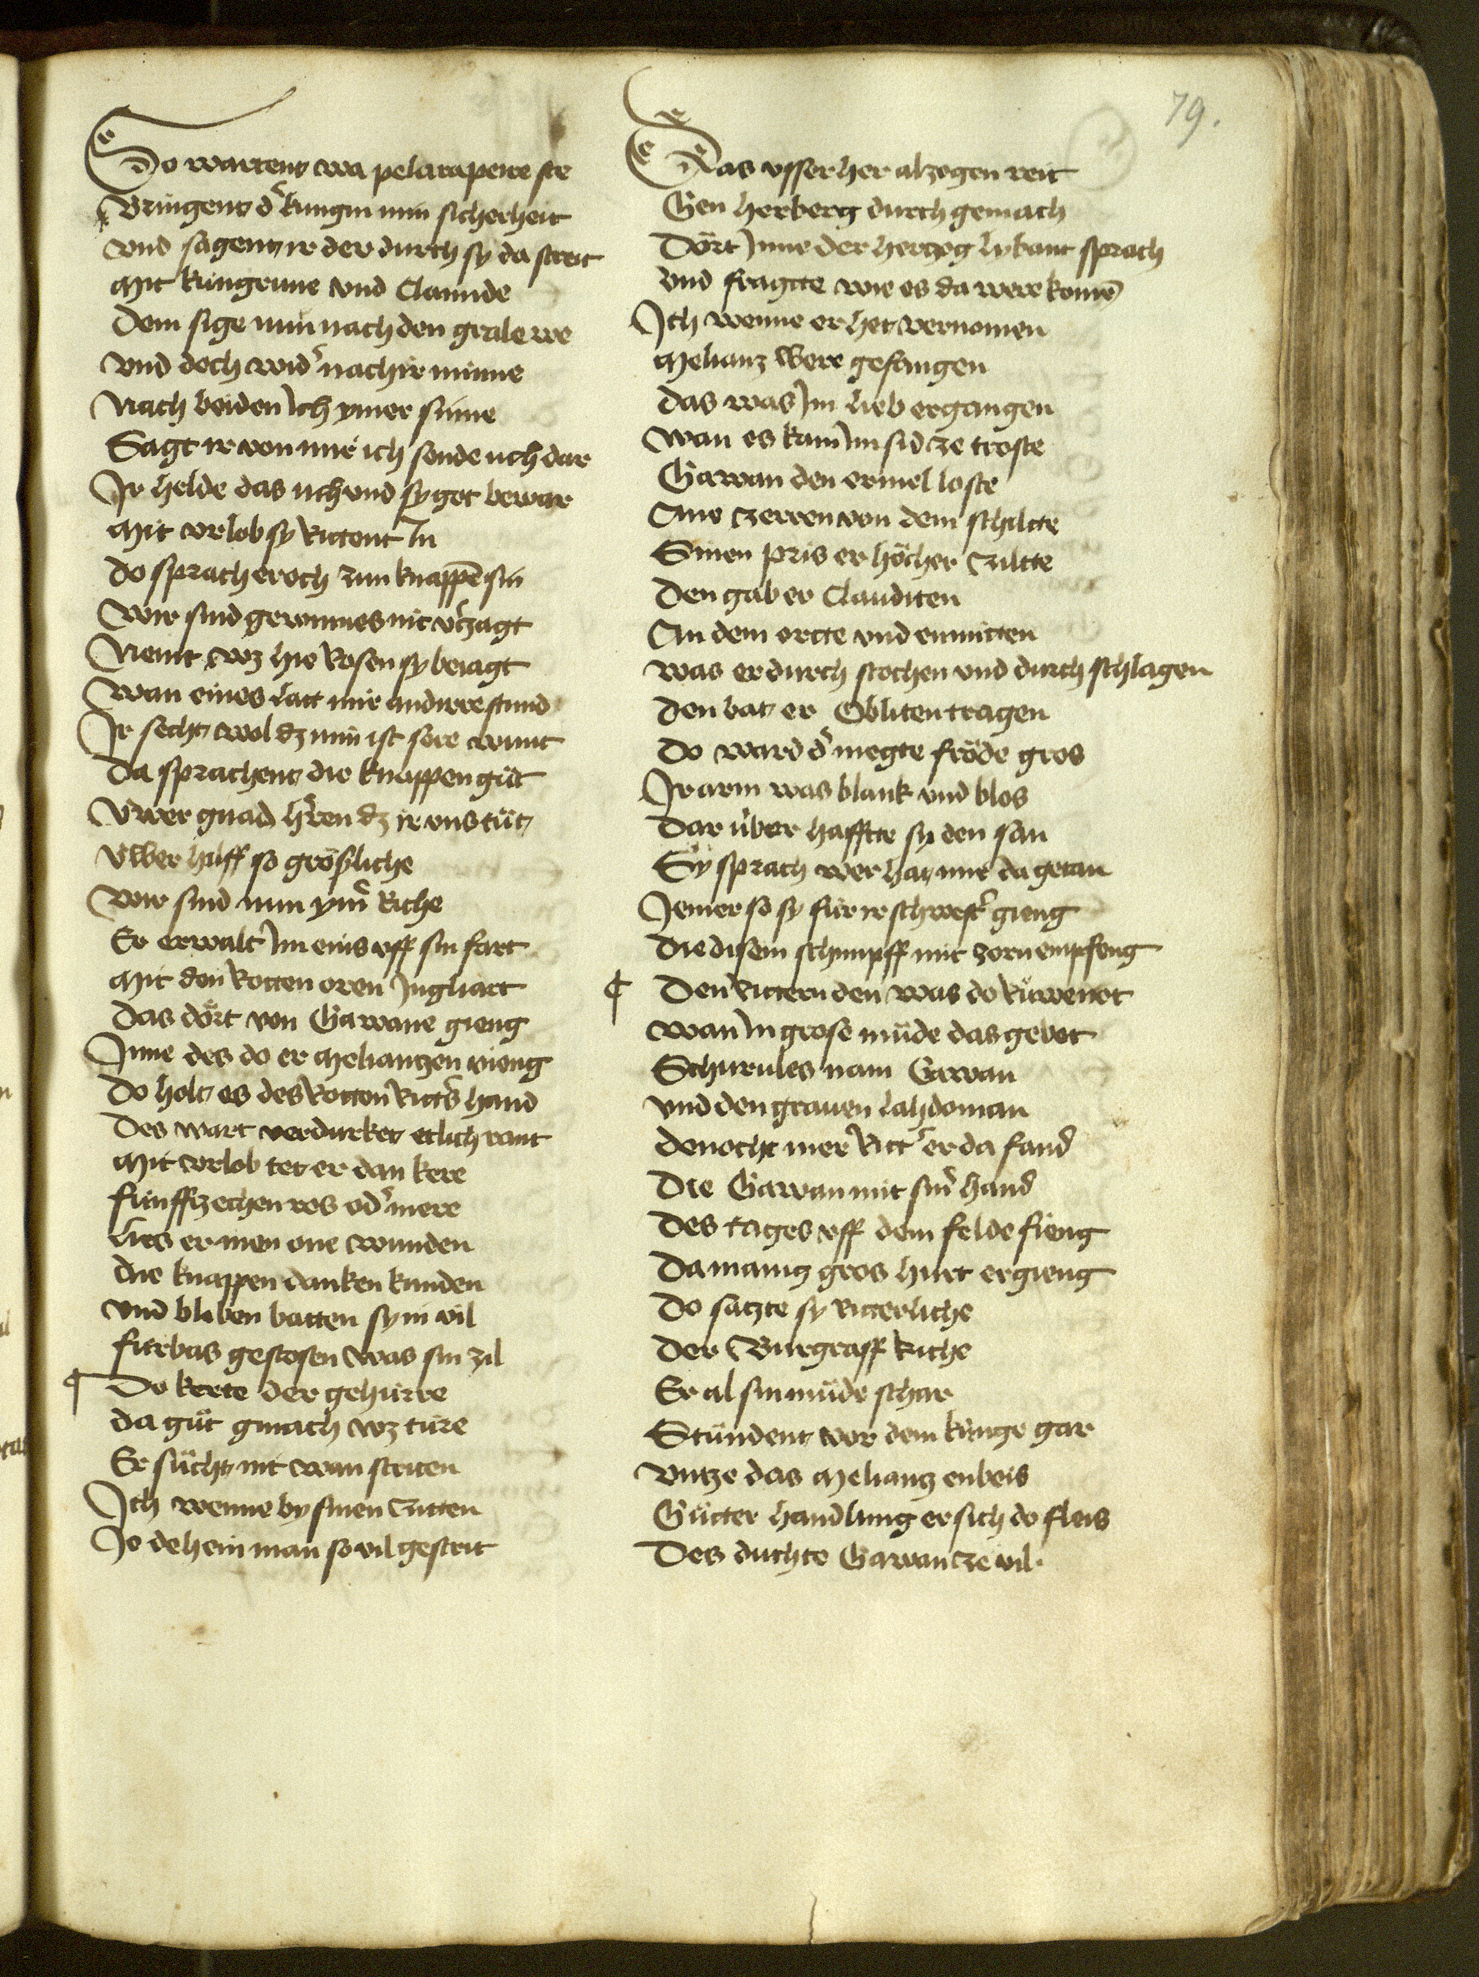 79.
So wartent wa pelrapeire ste
Bringent d' kungin min sicherheit
vnd sagent ir der durch sy da streit
Mit kungrune vnd Clamide
Dem sige nun nach den grale we
vnd doch wid' nach ir minne
Nach beiden ich ymer sinne
Sagt ir von mir ich sende uch dar
Ir helde das uch vnd sy got bewar
Mit vrlob sy rittent In
Do sprach er och zun knappē sin
Wir sind gewinnes nit v'zagt
Nemt wz hie rosen sy beiagt
Wan eines latt mir andirre stund
Ir secht wol dz min ist sere wunt
Da sprachent die knappen gůt
Vwer gnad h'ren dz ir vns tůt
Vwer hilff so grösliche
Wir sind nun ym' riche
Er erwalt Im eins vff sin fart
Mit den kotten oren Ingliart
Das dört von Gawane gieng
Inne des do er Meliantzen vieng
Do holt es des Rotten Ritt's hand
Des wart verdurket etlich rant
Mit vrlob tet er dan kere
funffzechen ros od' mere
Lies er inen one wunden
Die knappen danken kunden
Vnd bliben batten sy in vil
fürbas gestosen was sin zil
¶ Do kerte der gehürre
da gůt gmach wz türe
Er sůcht nit wan striten
Ich wenne by sinen Zitten
Je dehein man so vil gestrit
Das vsser her alzogen reit
Gen herberg durch gemach
Dört Inne der hertzog lybant sprach
Vnd fragtte wie es da were komē
Ich wenne er het vernomen
Melianz were gefangen
das was Im lieb ergangen
wan es kam Im sid ze troste
Gawan den ermel loste
Ane Zerren von dem schiltte
Sinen pris er höcher Ziltte
Den gab er Clauditen
An dem ortte vnd enmitten
was er durch stochen vnd durch schlagen
den bat er Obliten tragen
Do ward d' megte fröde gros
Ir arm was blank vnd blos
Dar über hafftte sy den san
Sy sprach wer hat mir da getan
Jemer so sy für ir schwest' gieng
die disem schimpff mit zorn empfeng
¶ Den Rittern den was do růwe not
wan In grose müde das gebot
Schurules nam Gawan
vnd den grauen Lahdoman
denocht mer Ritt' er da fand
Die Gawan mit sin' hand
Des tages vff dem felde fieng
Da manig gros hurt ergieng
Do satzte sy ritterliche
Der Burgraff Riche
Er al sin můde schar
Stůndent vor dem künge gar
Vntze das Meliantz enbeis
Gůtter handlung er sich do fleis
Des duchte Gawan ze vil